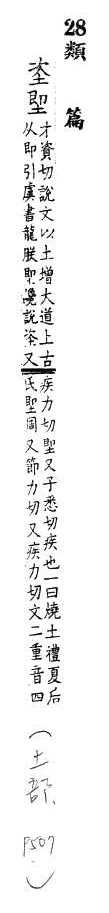 28類 篇
坙 堲
才資切說文以土增大道上古
从即引虞書龍朕堲讒說㳄又
疾力切堲又子悉切疾也一曰燒土禮夏后
氏堲周又節力切又疾力切文二重音四
(土部 P507)